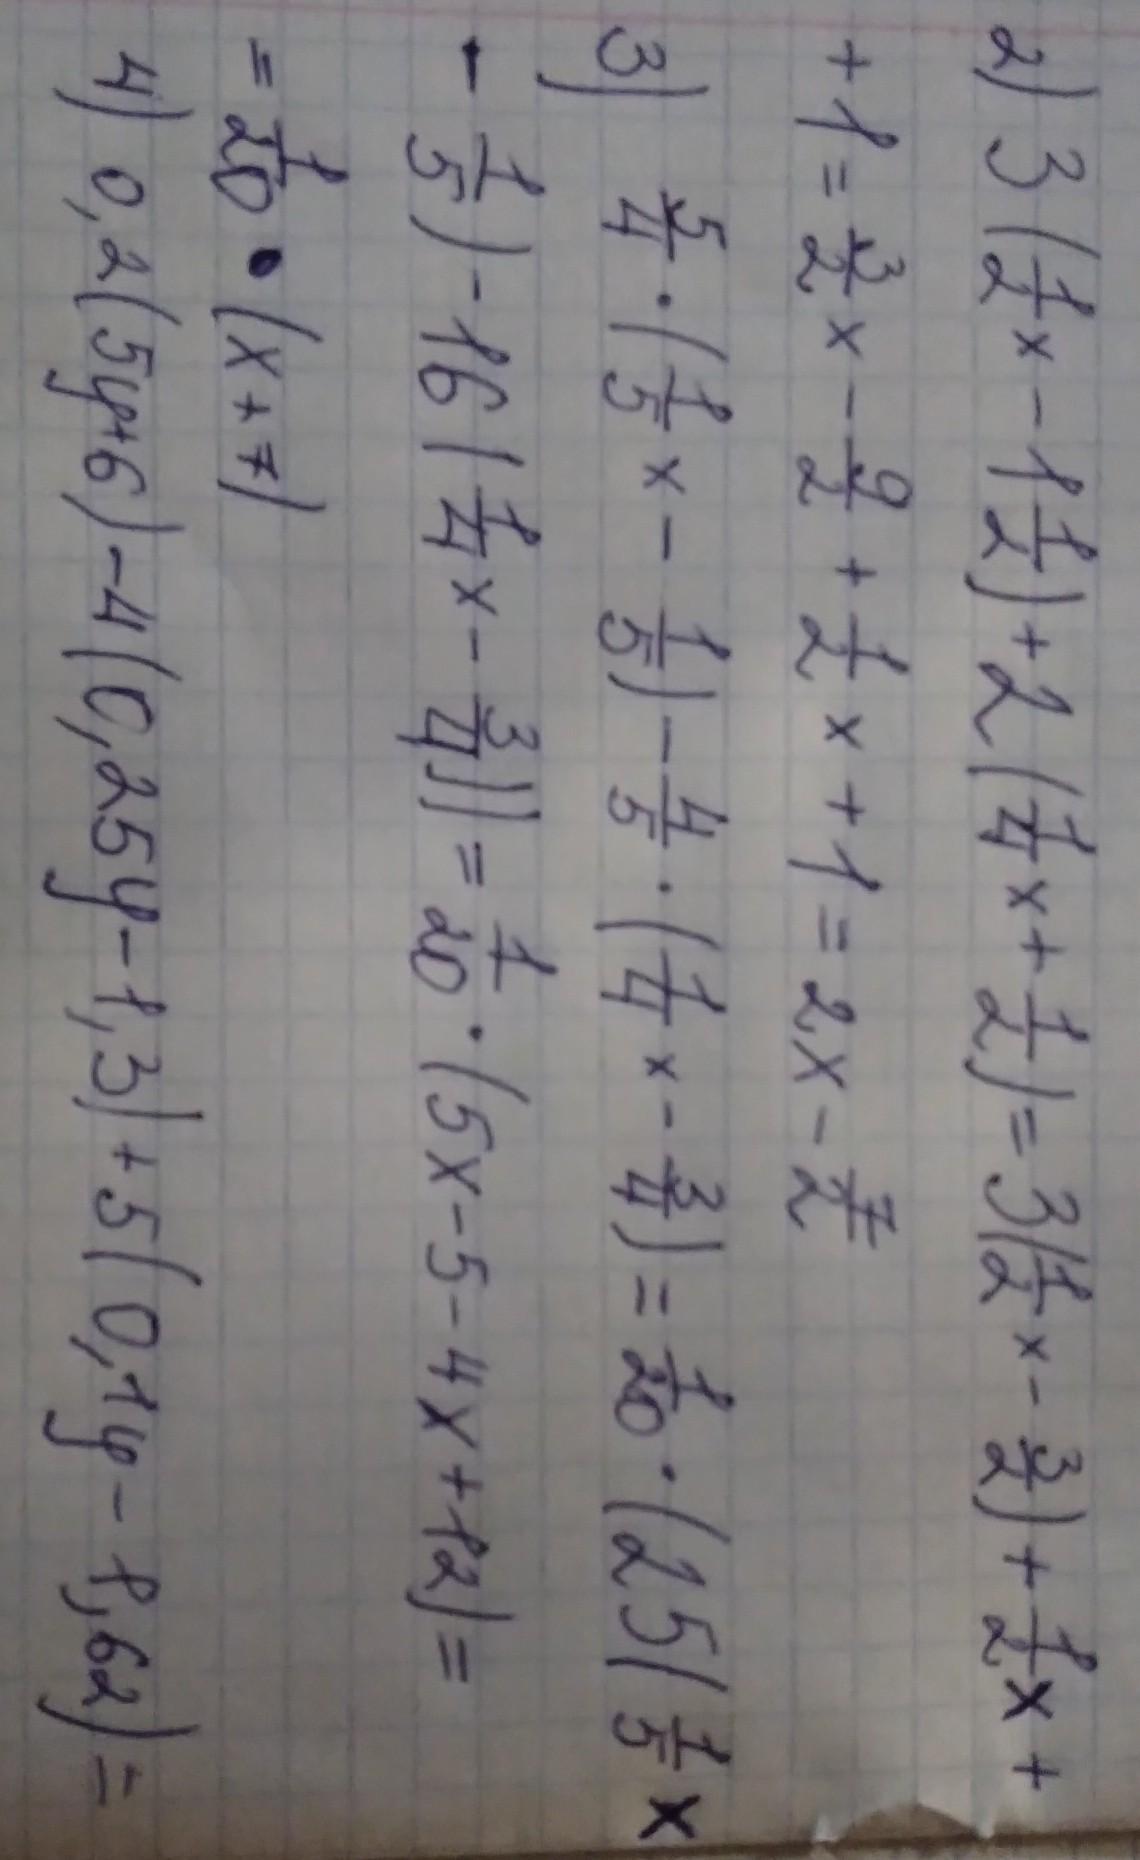 2) 3(1/2x - 1 1/2) + 2(1/4x + 1/2) = 3(1/2x - 3/2) + 1/2x +
+ 1 = 3/2x - 9/2 + 1/2x + 1 = 2x - 7/2
3) 5/4 · (1/5x - 1/5) - 4/5 · (1/4x - 3/4) = 1/20 · (25(1/5x
- 1/5) - 16(1/4x - 3/4)) = 1/20 · (5x - 5 - 4x + 12) =
= 1/20 · (x + 7)
4) 0,2(5y+6) - 4(0,25y - 1,3) + 5(0,1y - 1,62) =